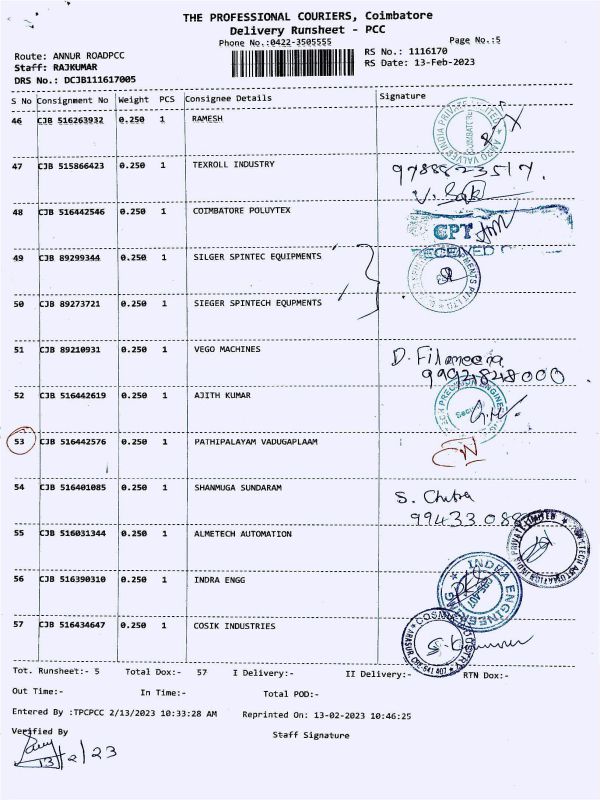 THE PROFESSIONAL COURIERS, Coimbatore
Delivery Runsheet - PCC
Phone No.:0422-3505555
Page No.:5
Route: ANNUR ROADPCC
RS No.: 1116170
Staff: RAJKUMAR
RS Date: 13-Feb-2023
DRS No.: DCJB111617005
S No Consignment No Weight PCS Consignee Details Signature
46 CJB 516263932 0.250 1 RAMESH
47 CJB 515866423 0.250 1 TEXROLL INDUSTRY
48 CJB 516442546 0.250 1 COIMBATORE POLUYTEX
CPT
RECEIVED
49 CJB 89299344 0.250 1 SILGER SPINTEC EQUIPMENTS
50 CJB 89273721 0.250 1 SIEGER SPINTECH EQUPMENTS
51 CJB 89210931 0.250 1 VEGO MACHINES
52 CJB 516442619 0.250 1 AJITH KUMAR
53 CJB 516442576 0.250 1 PATHIPALAYAM VADUGAPLAAM
54 CJB 516401085 0.250 1 SHANMUGA SUNDARAM S. Chitra
55 CJB 516031344 0.250 1 ALMETECH AUTOMATION
56 CJB 516390310 0.250 1 INDRA ENGG
57 CJB 516434647 0.250 1 COSIK INDUSTRIES
Tot. Runsheet:- 5 Total Dox:- 57 I Delivery:- II Delivery:- RTN Dox:-
Out Time:- In Time:- Total POD:-
Entered By :TPCPCC 2/13/2023 10:33:28 AM Reprinted On: 13-02-2023 10:46:25
Verified By Staff Signature
13/2/23